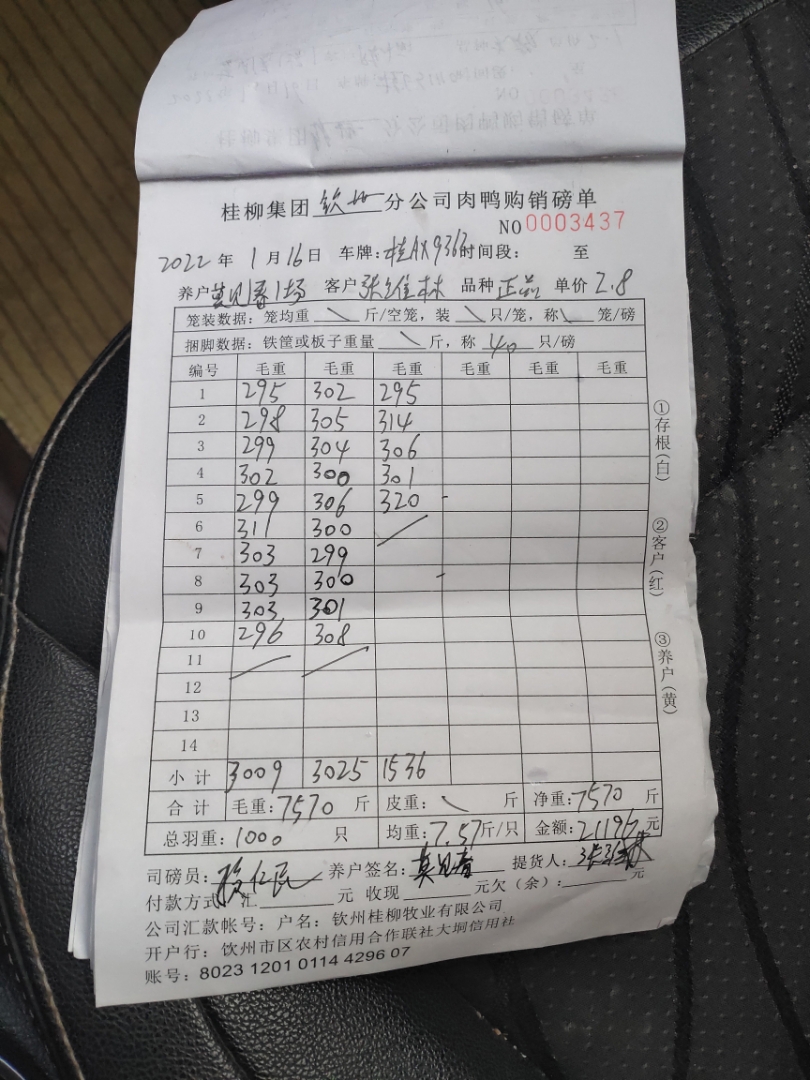 桂柳集团 钦州 分公司肉鸭购销磅单
NO 0003437
2022 年 1 月 16 日 车牌: 桂AX9363 时间段: 至
养户 莫见春1场 客户 张维林 品种 正品 单价 2.8
笼装数据: 笼均重 \ 斤/空笼, 装 \ 只/笼, 称 \ 笼/磅
捆脚数据: 铁筐或板子重量 \ 斤, 称 40 只/磅
编号 毛重 毛重 毛重 毛重 毛重 毛重
1 295 302 295
2 298 305 314
3 299 304 306
4 302 300 301
5 299 306 320
6 311 300
7 303 299
8 303 300
9 303 301
10 296 308
11
12
13
14
小计 3009 3025 1536
合计 毛重: 7570 斤 皮重: \ 斤 净重: 7570 斤
总羽重: 1000 只 均重: 7.57 斤/只 金额: 21196 元
司磅员: 养户签名: 莫见春 提货人: 张维林
付款方式: 汇 元 收现 元欠(余): 元
公司汇款帐号: 户名: 钦州桂柳牧业有限公司
开户行: 钦州市区农村信用合作联社大垌信用社
账号: 8023 1201 0114 4296 07
①存根(白)
②客户(红)
③养户(黄)